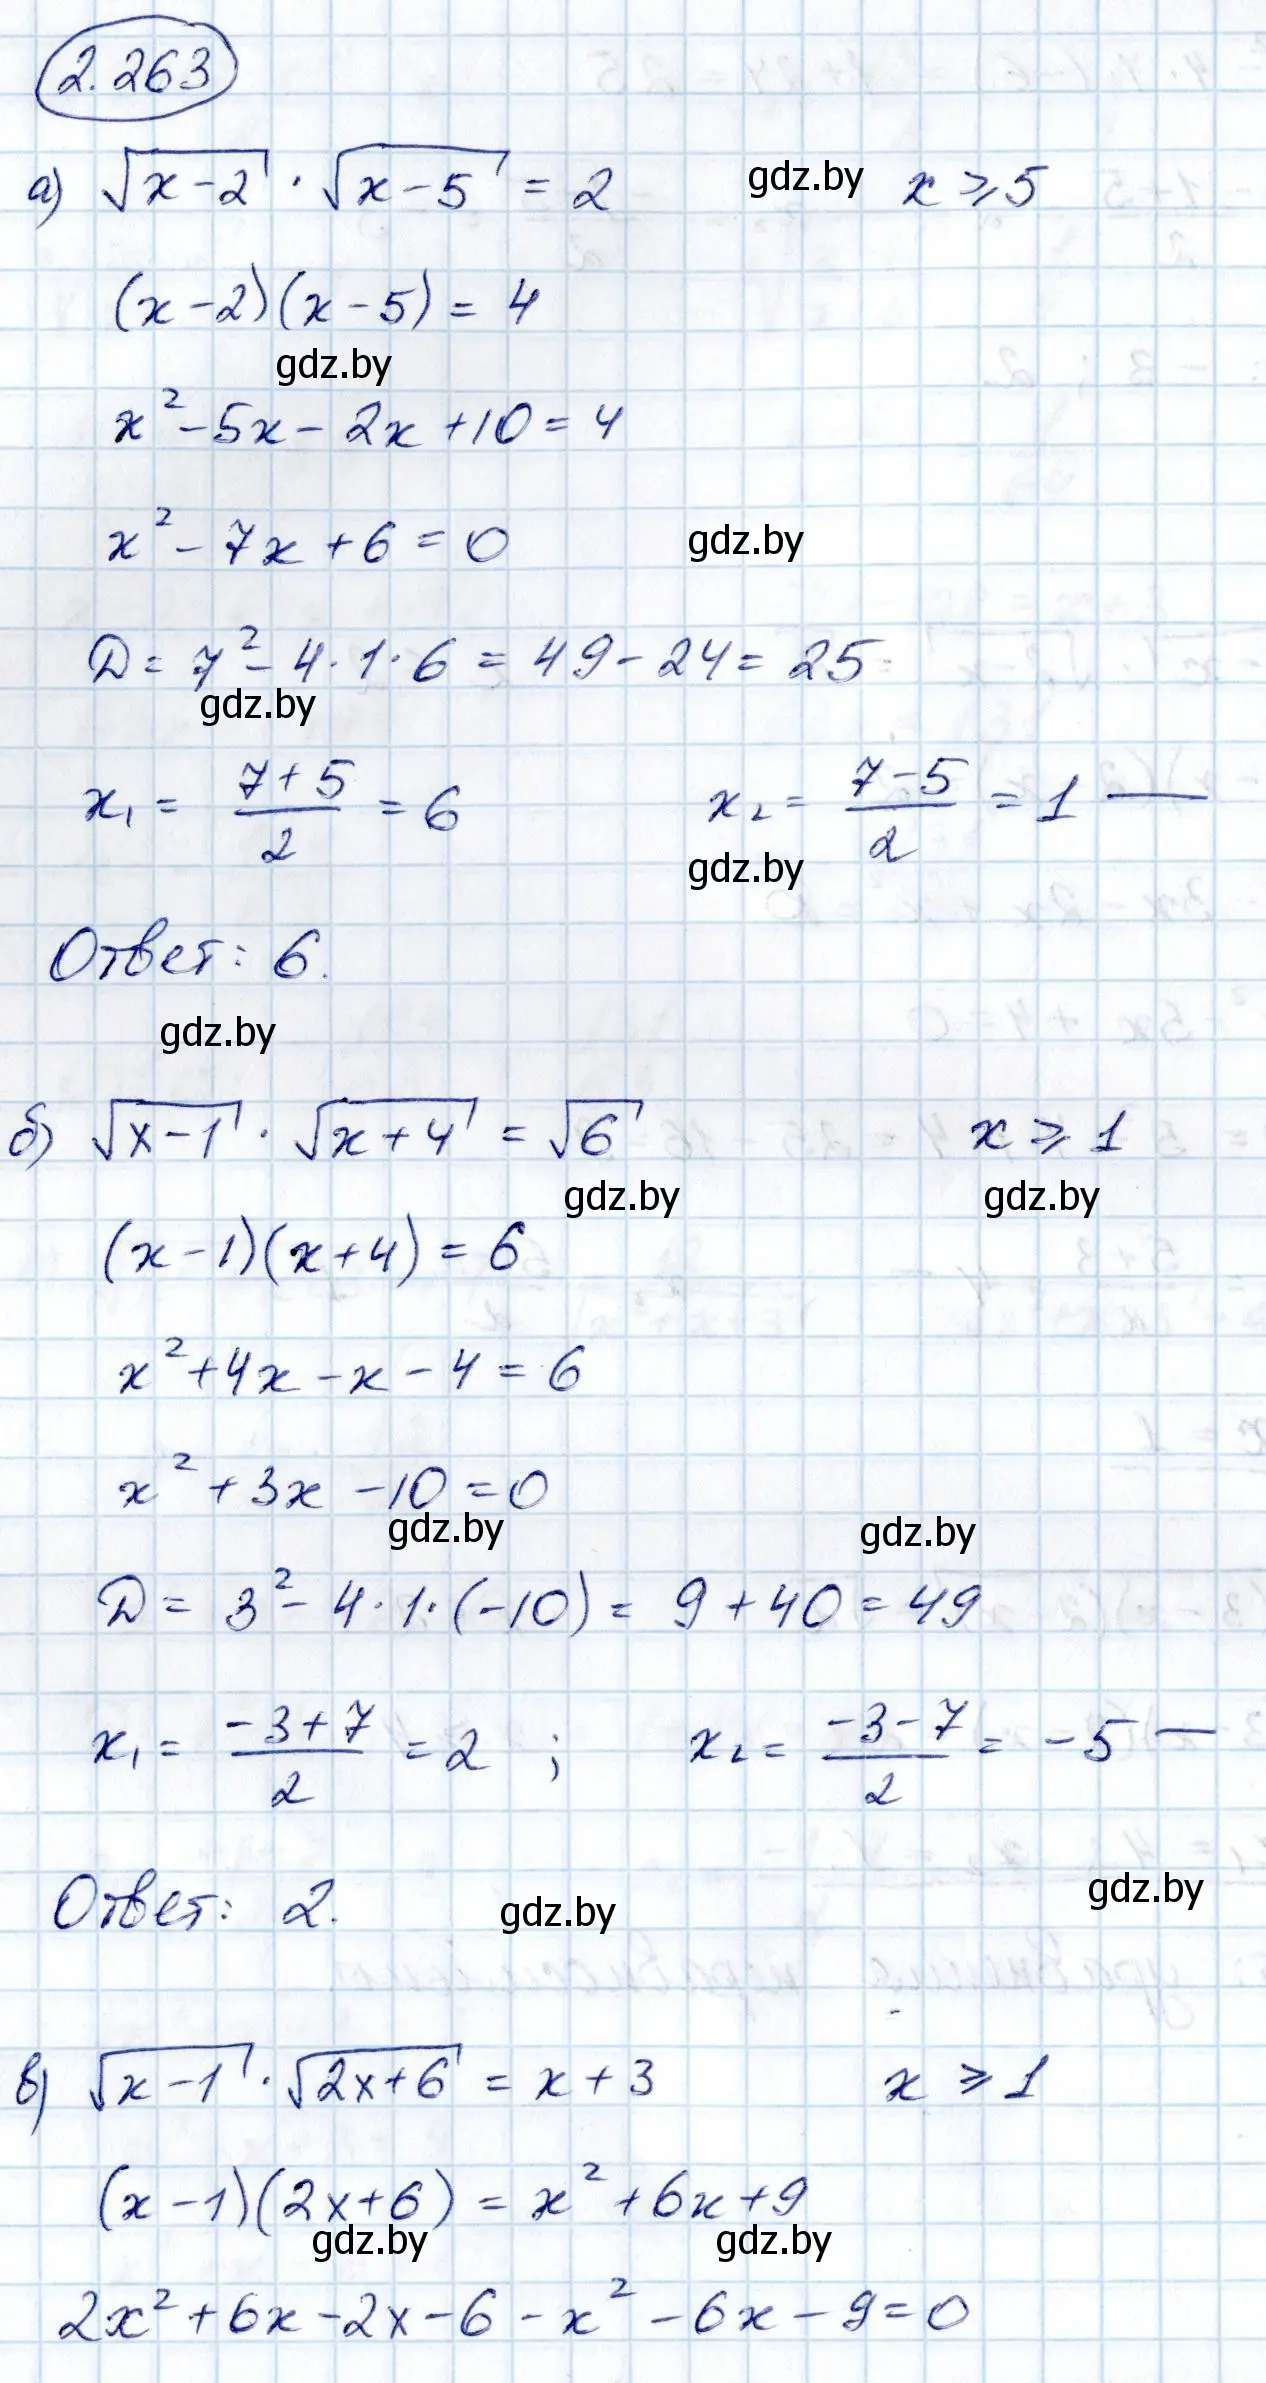 2.263
а) √(x-2) · √(x-5) = 2 gdz.by x ⩾ 5
(x-2)(x-5) = 4
gdz.by
x² - 5x - 2x + 10 = 4
x² - 7x + 6 = 0 gdz.by
D = 7² - 4·1·6 = 49 - 24 = 25
gdz.by
x₁ = (7+5)/2 = 6 x₂ = (7-5)/2 = 1 —
gdz.by
Ответ: 6.
gdz.by
б) √(x-1) · √(x+4) = √6 x ⩾ 1
gdz.by gdz.by
(x-1)(x+4) = 6
x² + 4x - x - 4 = 6
x² + 3x - 10 = 0
gdz.by gdz.by
D = 3² - 4·1·(-10) = 9 + 40 = 49
x₁ = (-3+7)/2 = 2 ; x₂ = (-3-7)/2 = -5 —
Ответ: 2. gdz.by gdz.by
в) √(x-1) · √(2x+6) = x + 3 x ⩾ 1
(x-1)(2x+6) = x² + 6x + 9
gdz.by gdz.by
2x² + 6x - 2x - 6 - x² - 6x - 9 = 0